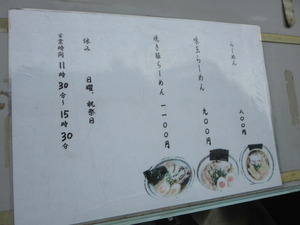 らーめん 八〇〇円
味玉らーめん 九〇〇円
焼き豚らーめん 一一〇〇円
休み 日曜、祝祭日
営業時間 11時30分～15時30分